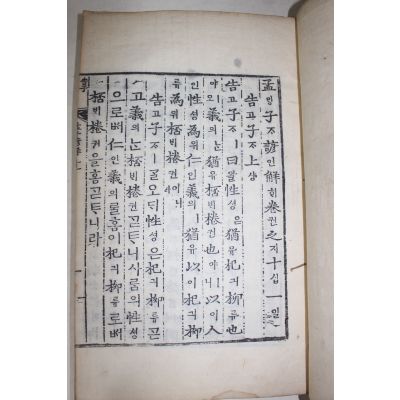 孟ᄆᆡᆼ子ᄌᆞ諺언解ᄒᆡ卷권之지十십一일
告고子ᄌᆞ上샹
告고子ᄌᆞㅣ曰왈性셩은猶유杞긔柳류也
야ㅣ오義의ᄂᆞᆫ猶유桮ᄇᆡ棬권也야ㅣ니以이人
인性셩爲위仁인義의ㅣ猶유以이杞긔柳
류爲위桮ᄇᆡ棬권이니라
告고子ᄌᆞㅣᄀᆞᆯ오ᄃᆡ性셩은杞긔柳류ᄀᆞᆮ
고義의ᄂᆞᆫ桮ᄇᆡ棬권ᄀᆞᆮᄐᆞ니사ᄅᆞᆷ의性셩
으로ᄡᅥ仁인義의를홈이杞긔柳류로ᄡᅥ
桮ᄇᆡ棬권을홈ᄀᆞᆮᄐᆞ니라